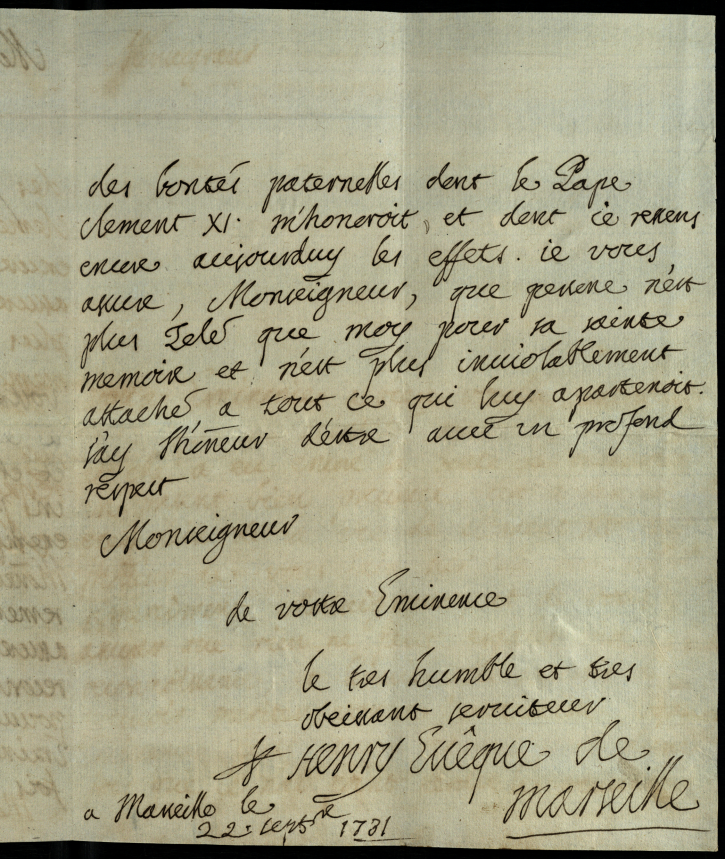 des bontés paternelles dont le Pape
clement XI. m'honoroit, et dont ie resens
encore aujourduy les effets. ie vous
assure, Monseigneur, que persone n'est
plus zelé que moy pour sa sainte
memoire et n'est plus inuiolablement
attaché a tout ce qui luy apartenoit.
i'ay l'hôneur d'estre auec un profond
respect
Monseigneur
de vostre Eminence
le tres humble et tres
obeissant seruiteur
+ Henry Euêque de
Marseille
a Marseille le
22e septbre 1731